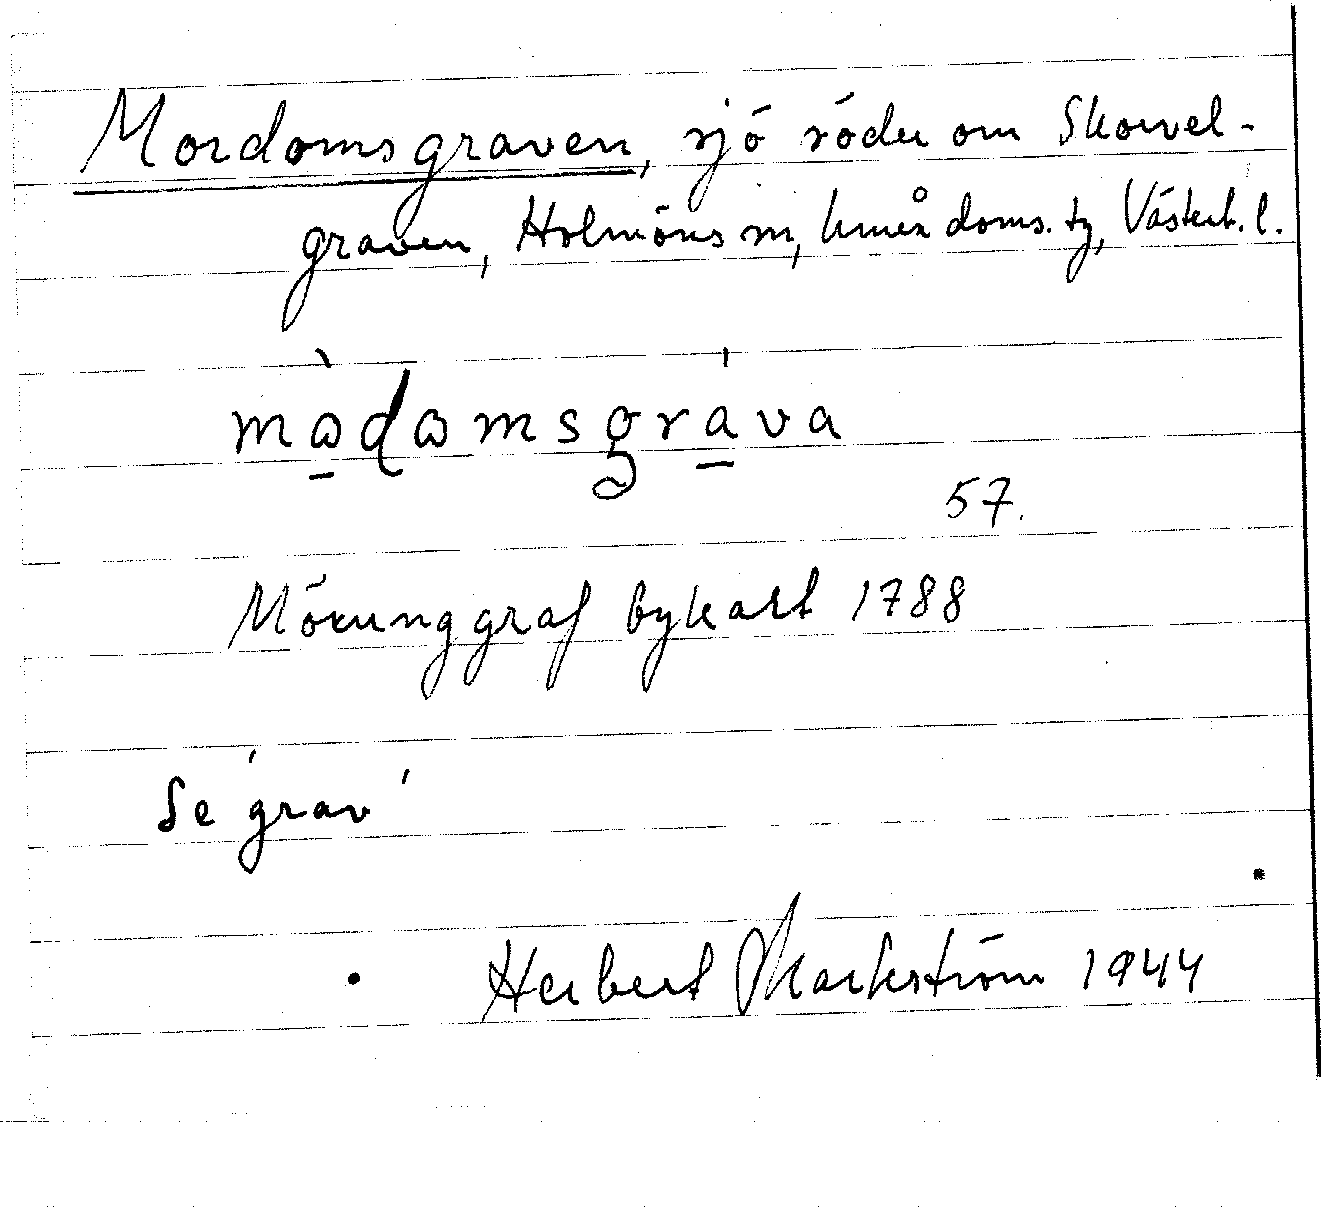 Mordomsgraven, sjö söder om Skovel-
graven, Holmöns sn, Umeå doms. tg, Västerb. l.
mɷ̀dɷmsgráva
57.
Mörunggraf bykart 1788
Se 'grav'
Herbert Markström 1944